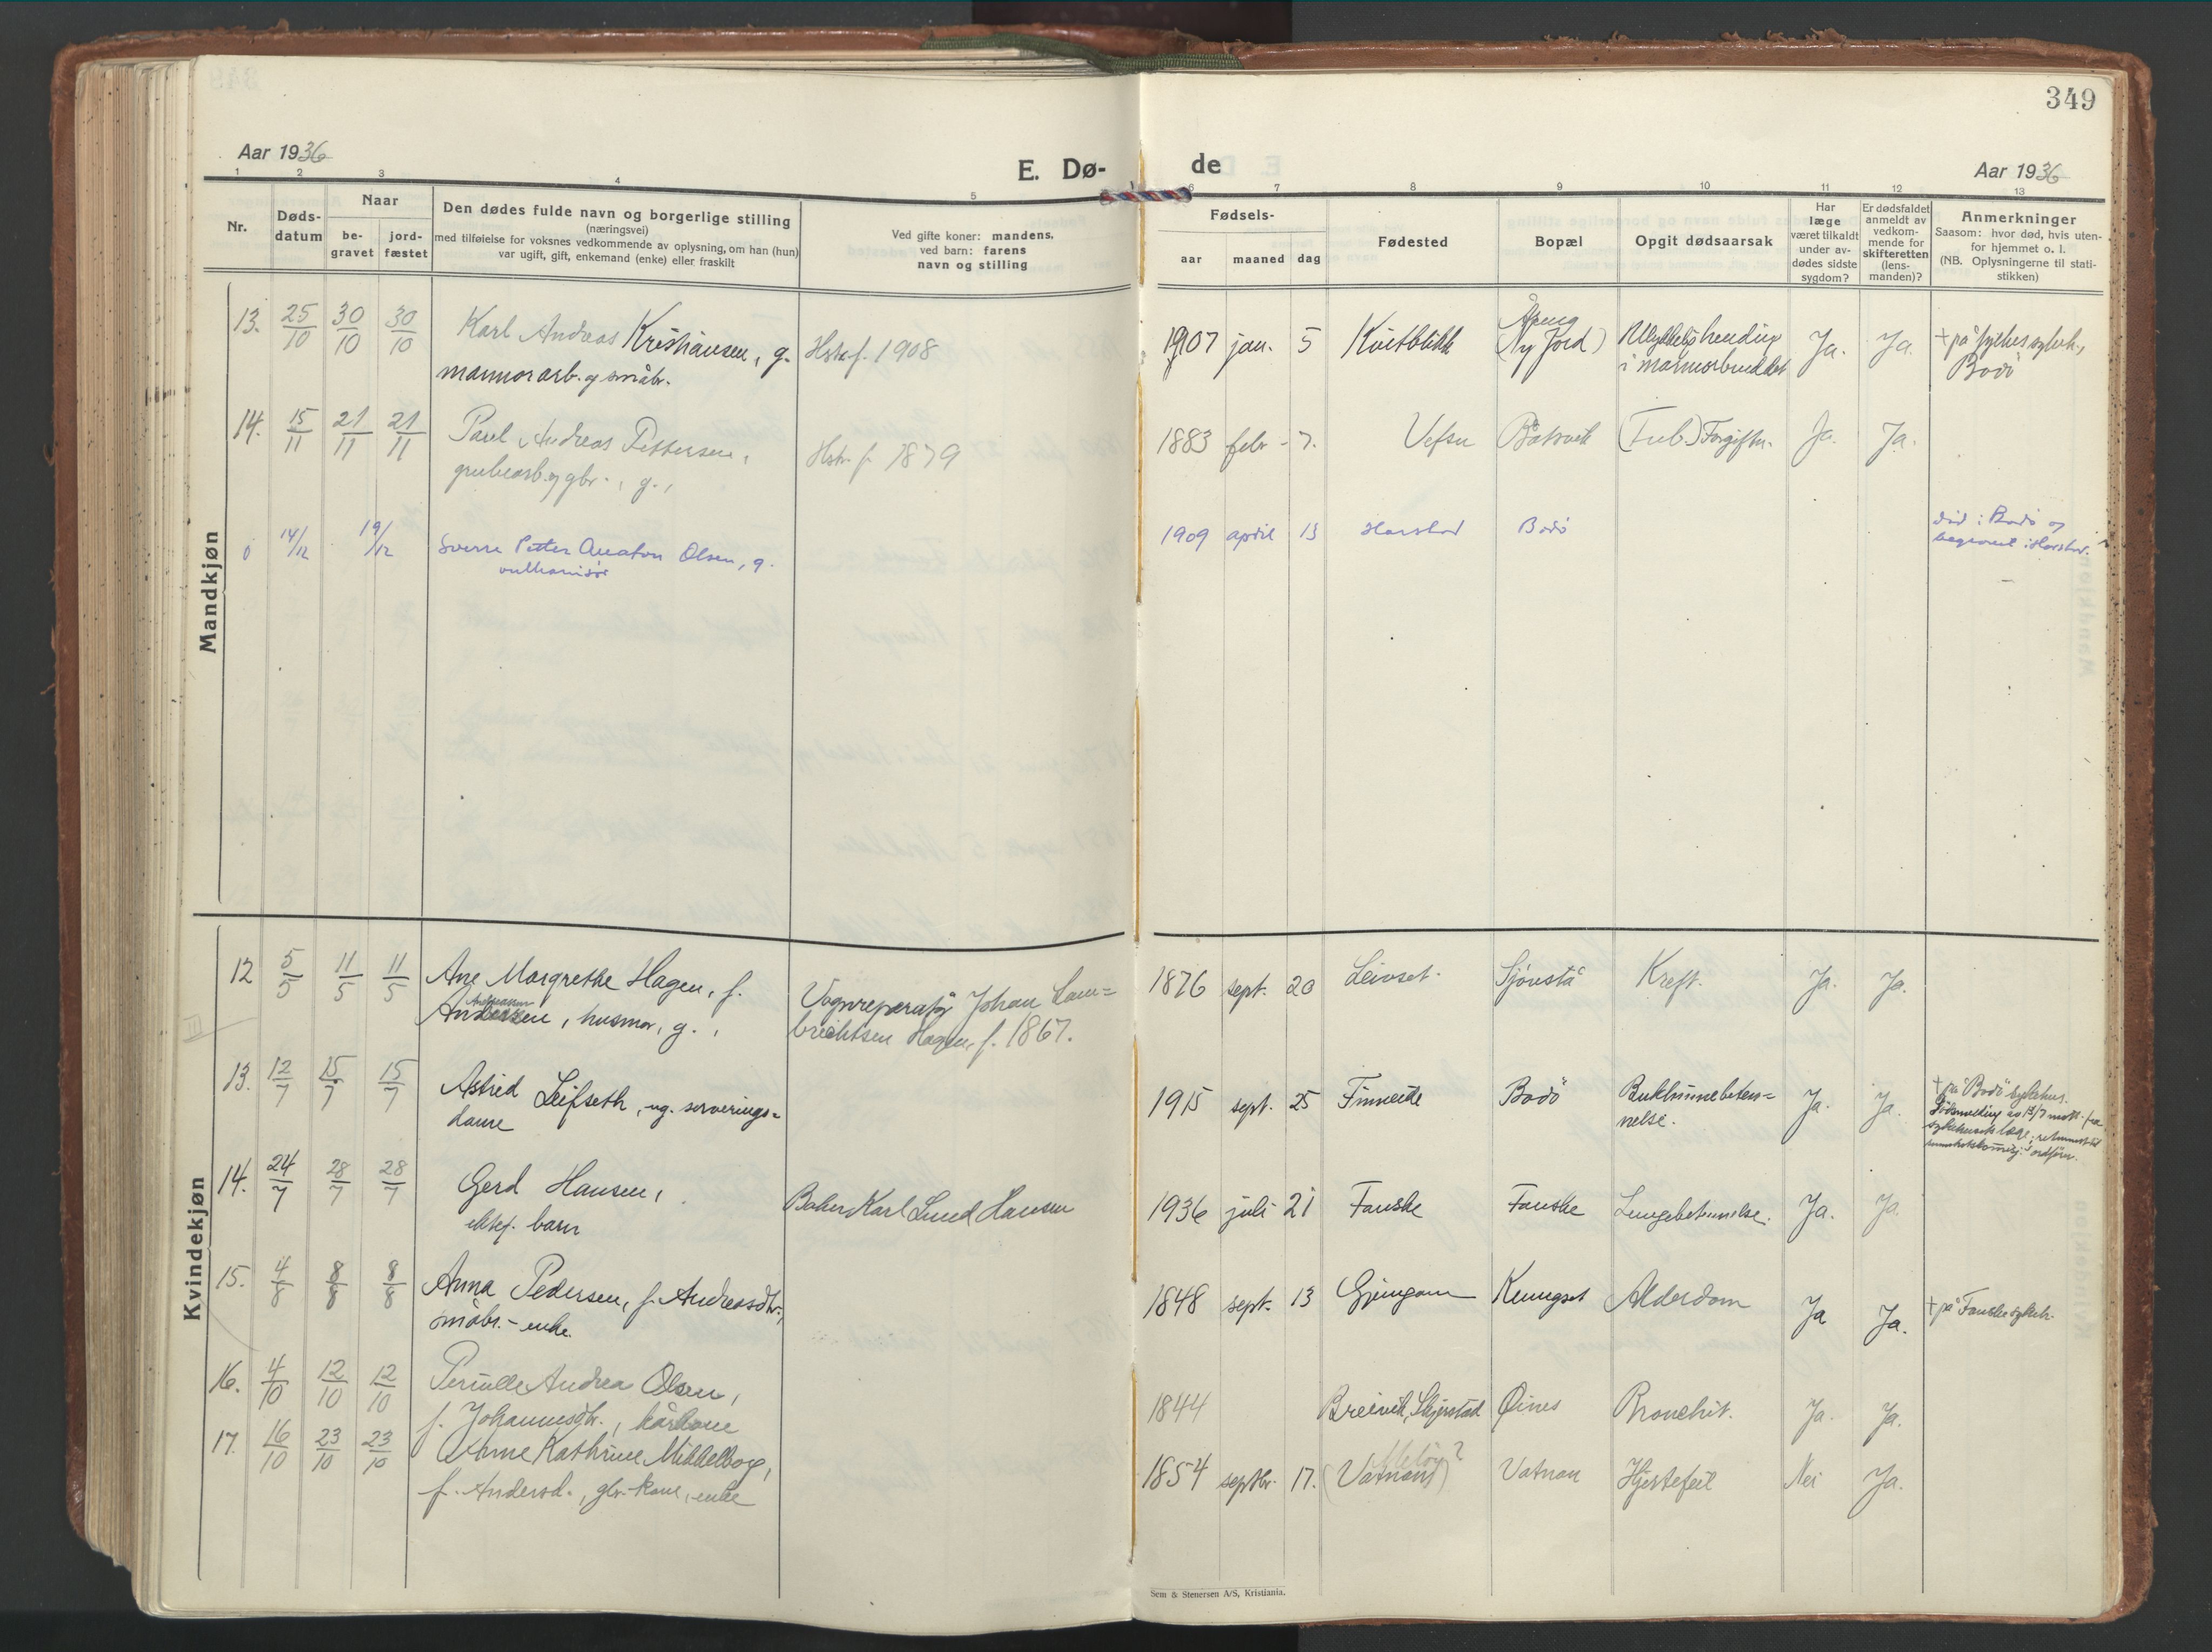 349
Aar 1936
E. Dø-
de
Aar 1936
1 2 3 4 5 6 7 8 9 10 11 12 13
Nr.
Døds-
datum
Naar
be-
gravet
jord-
fæstet
Den dødes fulde navn og borgerlige stilling
(næringsvei)
med tilføielse for voksnes vedkommende av oplysning, om han (hun)
var ugift, gift, enkemand (enke) eller fraskilt
Ved gifte koner: mandens,
ved barn: farens
navn og stilling
Fødsels-
aar maaned dag
Fødested
Bopæl
Opgit dødsaarsak
Har
læge
været tilkaldt
under av-
dødes sidste
sygdom?
Er dødsfaldet
anmeldt av
vedkom-
mende for
skifteretten
(lens-
manden)?
Anmerkninger
Saasom: hvor død, hvis uten-
for hjemmet o. l.
(NB. Oplysningerne til stati-
stikken)
Mandkjøn
13. 25/10 30/10 30/10 Karl Andreas Kristiansen, g. Hstr. f. 1908 1907 jan. 5 Kvitblikk (Ny Jord) Ulykkeshending Ja. Ja. + på fylkessykeh.,
marmorarb. og småbr. i marmorbruddet Bodö
14. 15/11 21/11 21/11 Paul Andreas Pettersen, Hstr. f. 1879 1883 febr. 7. Vefsn Båtsvik (Tub.) Forgiftn. Ja. Ja.
grubearb. og gbr., g.,
0 14/12 19/12 Sverre Petter Anaton Olsen, g. 1909 april 13 Harstad Bodö död i Bodö og
vulkanisör begravet i Harstad.
Kvindekjøn
12 5/5 11/5 11/5 Ane Margrethe Hagen, f. Vognreparatör Johan Lam= 1876 sept. 20 Leivset. Sjönstå Kreft. Ja. Ja.
Andreassen
Andersen, husmor, g., brechtsen Hagen, f. 1867.
13. 12/7 15/7 15/7 Astrid Leifseth, ug. serverings= 1915 sept. 25 Finneide Bodö Bukhinnebeten= Ja. Ja. + på Bodö sykehus.
dame nelse. Dödsmelding av 13/7 mott. fra
14. 24/7 28/7 28/7 Gerd Hansen, Baker Karl Lund Hansen 1936 juli 21 Fauske Fauske Lungebetennelse. Ja. Ja.
ektef. barn
15. 4/8 8/8 8/8 Anna Pedersen, f. Andreasdtr., 1848 sept. 13 Gjemgam Kenngset Alderdom Ja Ja. + på Fauske sykeh.
småbr.-enke.
16. 4/10 12/10 12/10 Pernille Andrea Olsen, 1844 Breivik, Skjerstad Øines Bronchit. Ja. Ja.
f. Johannesdtr., kårkone
17. 16/10 23/10 23/10 Anne Kathrine Middelborg, 1854 septbr. 17. (Vatnan) Melöy? Vatnan Hjertefeil Nei Ja.
f. Andersd., gbr.-kone, enke
Sem & Stenersen A/S, Kristiania.